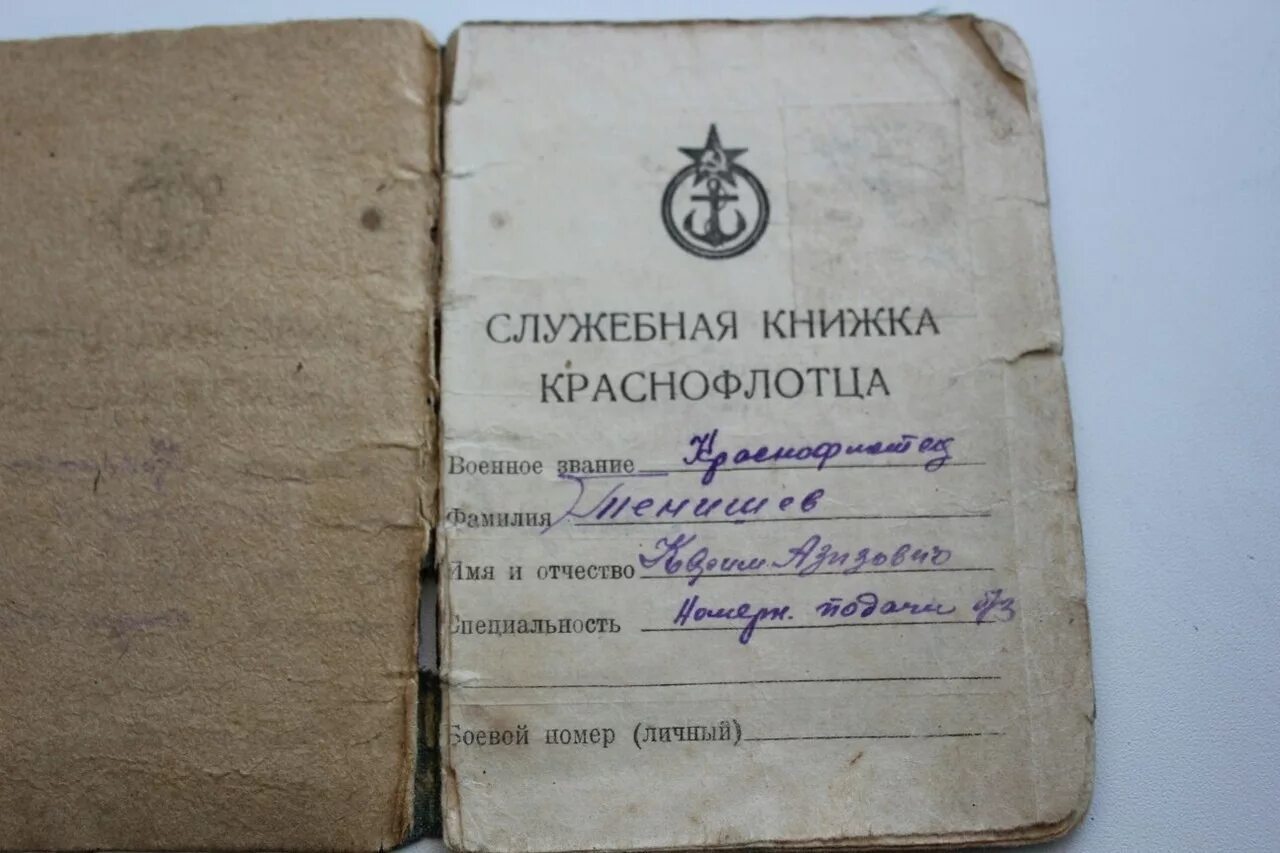 СЛУЖЕБНАЯ КНИЖКА
КРАСНОФЛОТЦА
Военное звание Краснофлотец
Фамилия Тенишев
Имя и отчество Керим Азизович
Специальность Номерн. подачи б/з
Боевой номер (личный)